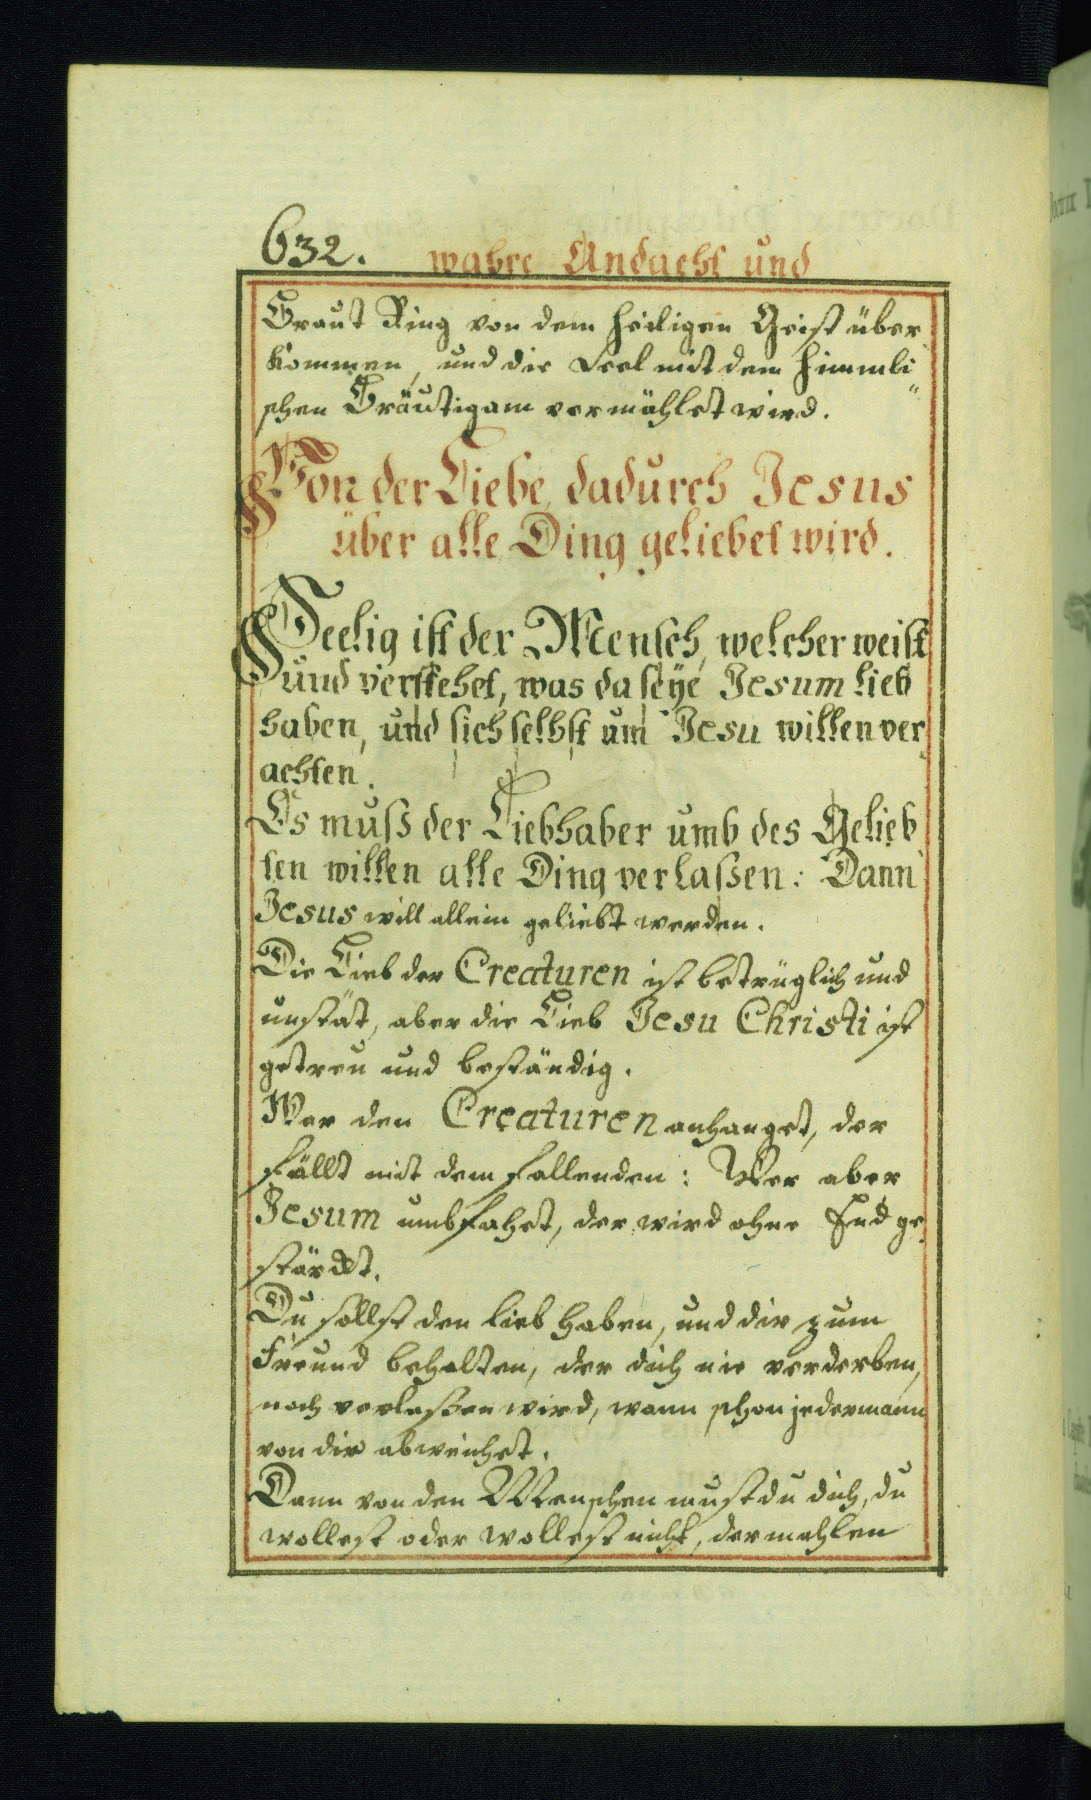 632. wahre Andacht und
Braut Ring von dem heiligen Geist über
kommen, und die Seel mit dem himmli
schen Bräutigam vermählet wird.
Von der Liebe, dadurch Jesus
über alle Ding geliebet wird.
Seelig ist der Mensch, welcher weist
und verstehet, was da seye Jesum lieb
haben, und sich selbst um Jesu willen ver
achten.
Es muß der Liebhaber umb des Gelieb
ten willen alle Ding verlaßen: Dann
Jesus will allein geliebt werden.
Die Lieb der Creaturen ist betrüglich und
unstät, aber die Lieb Jesu Christi ist
getreu und beständig.
Wer den Creaturen anhanget, der
fällt mit dem fallenden: Wer aber
Jesum umbfahet, der wird ohne End ge
stärckt.
Du sollst den lieb haben, und dir zum
Freund behalten, der dich nie verderben,
noch verlaßen wird, wann schon jedermann
von dir abweichet.
Dann von den Menschen must du dich, du
wollest oder wollest nicht, dermahlen